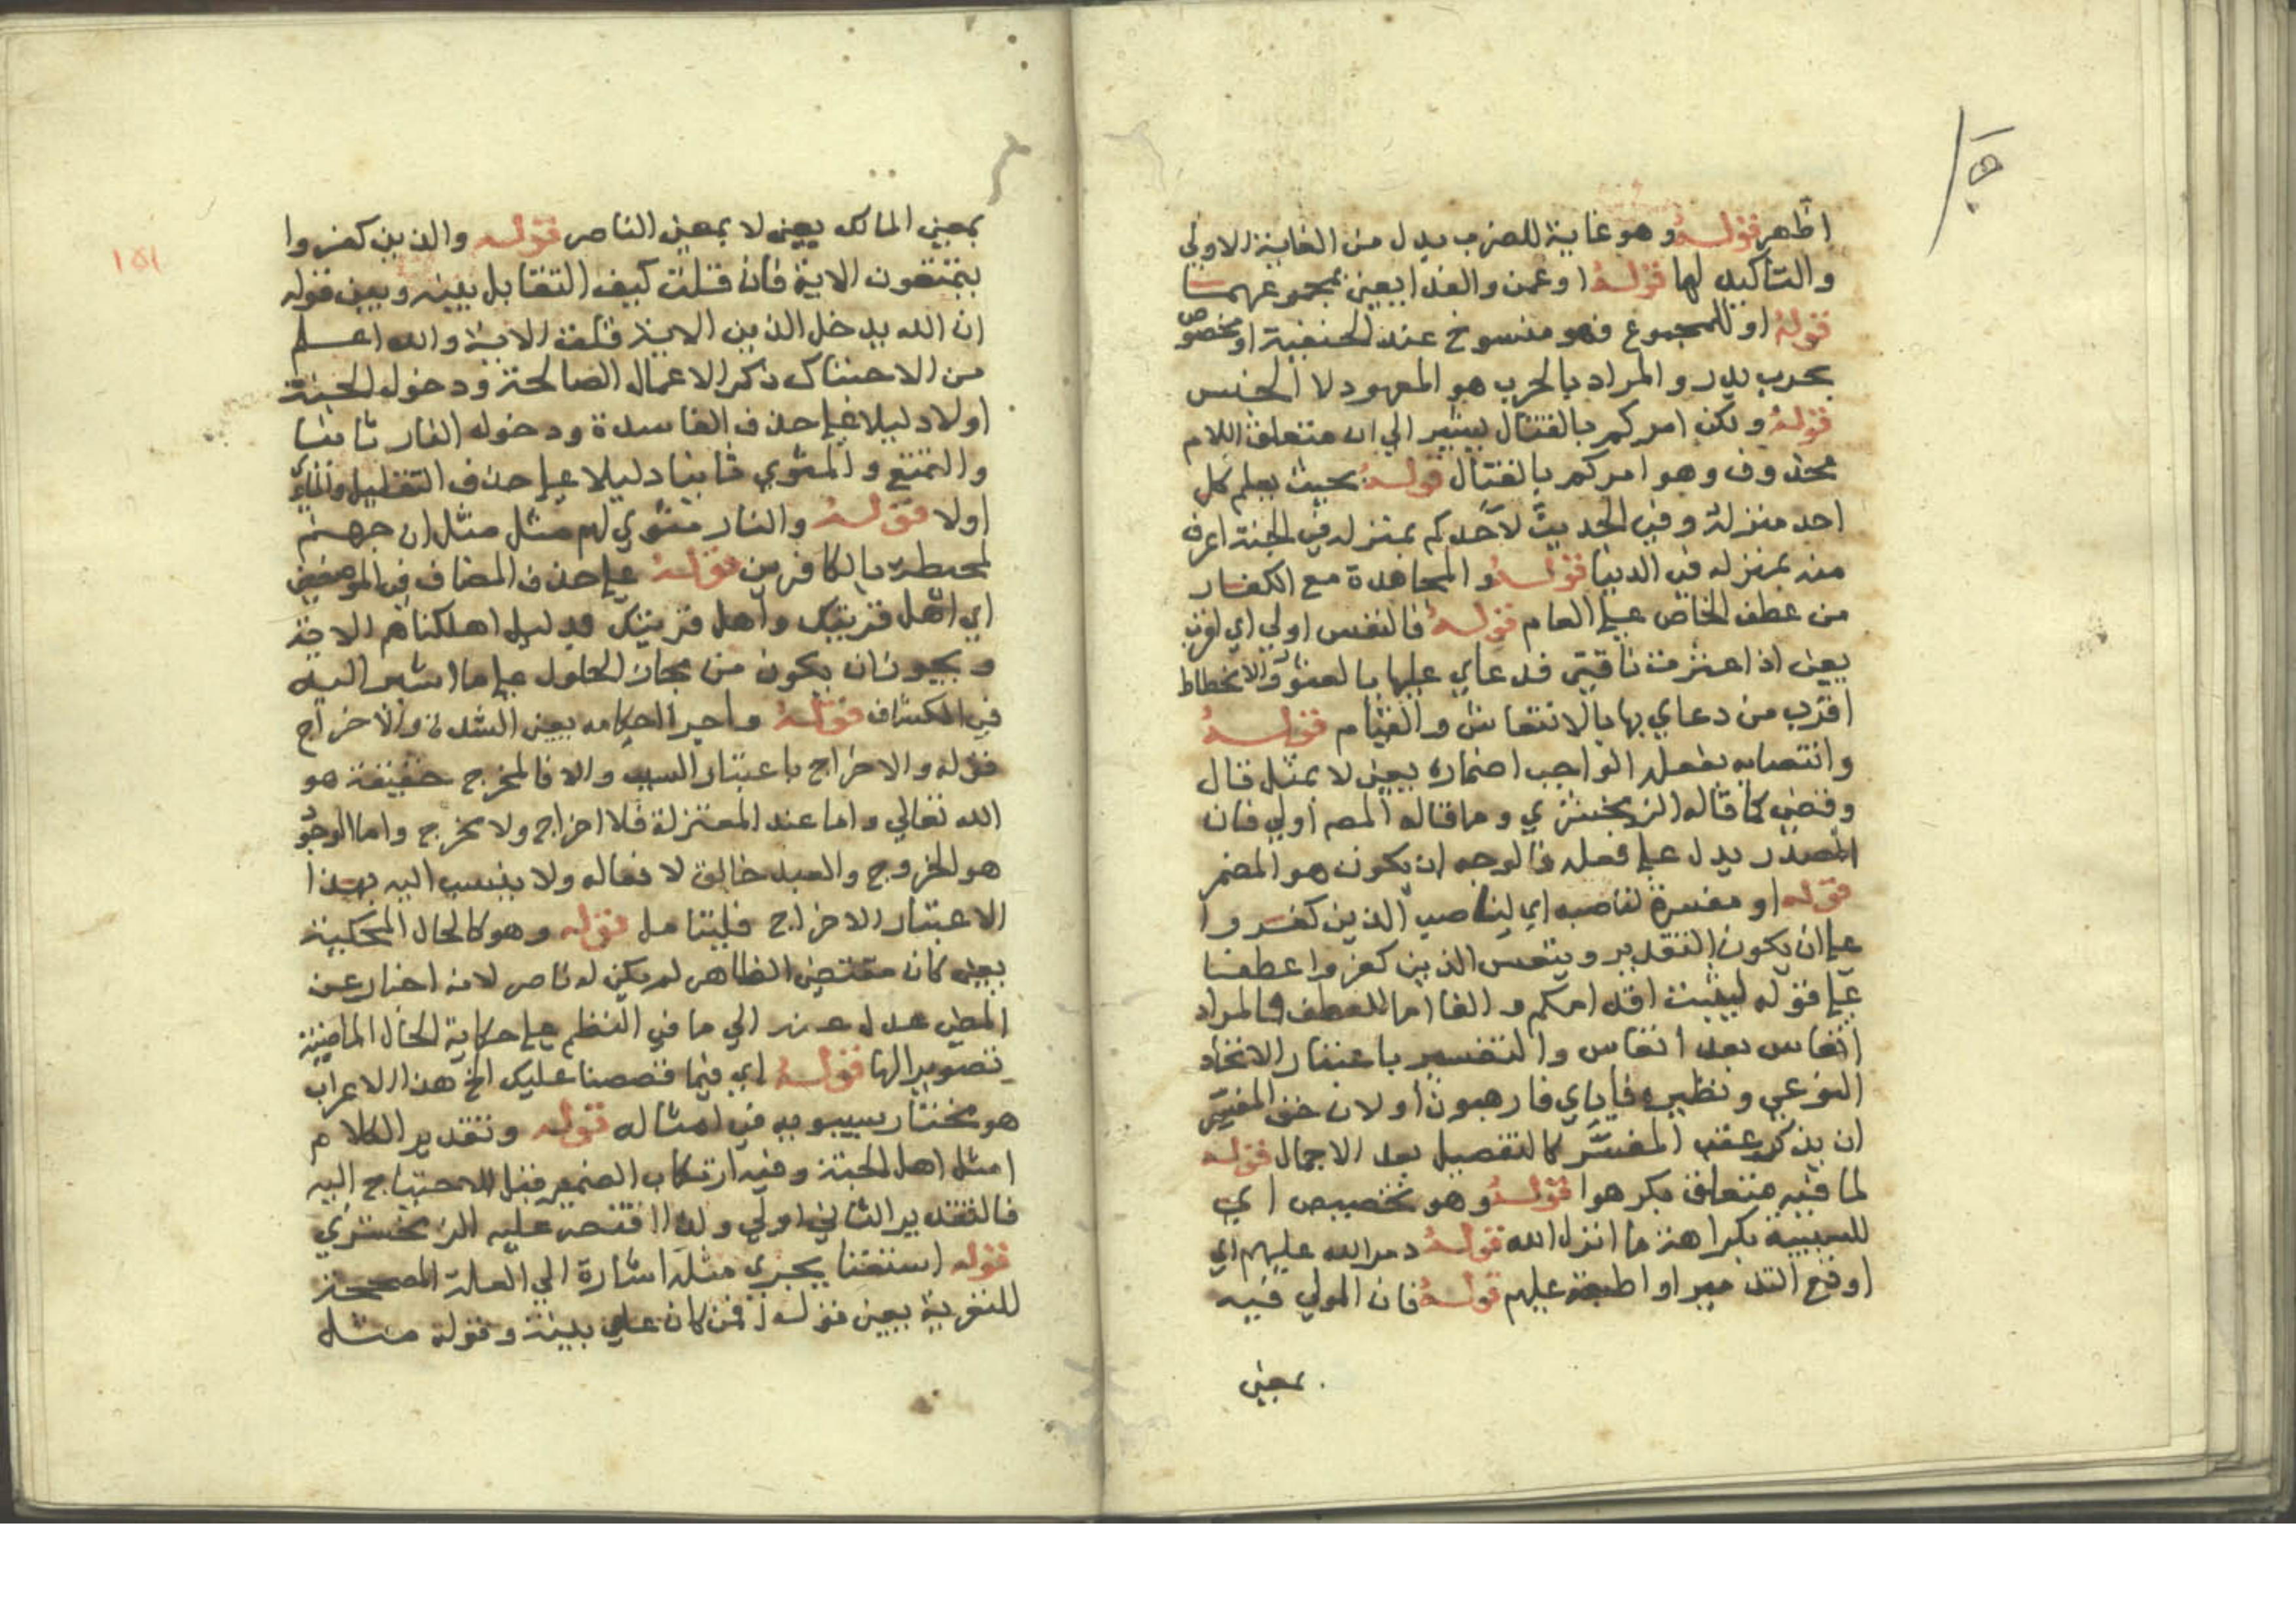 اظهر قوله وهو غاية للضرب بدل من الغاية الاولى
والتأكيد لها قوله او عمن والفدا يعني بمجموعهما
قوله او للمجموع فهو منسوخ عند الحنفية او مخصوص
بحرب بدر والمراد بالحرب هو المعهود لا الجنس
قوله ولكن امركم بالقتال يشير الي ان متعلق اللام
محذوف وهو امركم بالقتال قوله بحيث يعلم كل
احد منزلة وفي الحديث لأحدكم بمنزله في الجنة اعرف
منه بمنزله في الدنيا قوله والمجاهدة مع الكفار
من عطف الخاص علي العام قوله فالتعس اولي اي لفت
يعني اذا عثرت ناقتي فدعاي عليها بالعثور والانحطاط
اقرب من دعاي بها بالانتعاش والقيام قوله
وانتصابه بفعله الواجب اضماره يعني لا بمثل قال
وقضي كما قاله الزمخشري وما قاله المصم اولي فان
المصدر يدل علي فعله فالوجه ان يكون هو المضمر
قوله او مفسرة لناصبه اي لناصب الذين كفروا
علي ان يكون التقدير ويتعس الذين كفروا عطفا
علي قوله ليثبت اقدامكم والفا اما للعطف فالمراد
اتعاس بعد اتعاس والتفسير باعتبار الاتحاد
النوعي ونظيره فإياي فارهبون او لان حق المفسر
ان يذكر عقب المفسَّر كالتفصيل بعد الاجمال قوله
لما فيه متعلق بكرهوا قوله وهو تخصيص اي
للسببية بكراهة ما انزل الله قوله دمر الله عليهم اي
اوقع التدمير او اطبقه عليهم قوله فان المولي فيه
بمعني
١٥١
بمعني المالك يعني لا بمعني الناصر قوله والذين كفروا
يتمتعون الاية فان قلت كيف التقابل بينه وبين قوله
ان الله يدخل الذين الاية قلت الاية والله اعلم
من الاحتباك ذكر الاعمال الصالحة ودخول الجنة
اولا دليلا علي حذف الفاسدة ودخوله النار ثانيا
والتمتع والمثوي ثانيا دليلا علي حذف التقليل والمأوي
اولا قوله والنار مثوي لهم مثل مثل ان جهنم
لمحيطة بالكافرين قوله علي حذف المضاف في الموضعين
اي اهل قريتك واهل قريتك بدليل اهلكناهم الاية
ويجوز ان يكون من مجاز الحلول علي ما اشير اليه
في الكشاف قوله واجر احكامه يعني الشدة والاخراج
قوله والاخراج باعتبار السبب والا فالمخرج حقيقة هو
الله تعالي واما عند المعتزلة فلا اخراج ولا مخرج واما الوجود
هو الخروج والعبد خالق لافعاله ولا ينسب اليه بهذا
الاعتبار الاخراج فليتامل قوله وهو كالحال المحكية
يعني كان مقتضي الظاهر لم يكن له ناصر لانه اخبار عن
المضي عدل عنه الي ما في النظم علي حكاية الحال الماضية
تصويرا لها قوله اي فيما قصصنا عليك الخ هذا الاعراب
هو مختار سيبويه في امثاله قوله وتقدير الكلام
امثل اهل الجنة وفيه ارتكاب الضمير قبل الاحتياج اليه
فالتقدير الثاني اولي ولذا اقتصر عليه الزمخشري
قوله استغنا يجري مثله اشارة الي العلة المصححة
للتعرية يعني قوله افمن كان علي بينة وقوله مثل